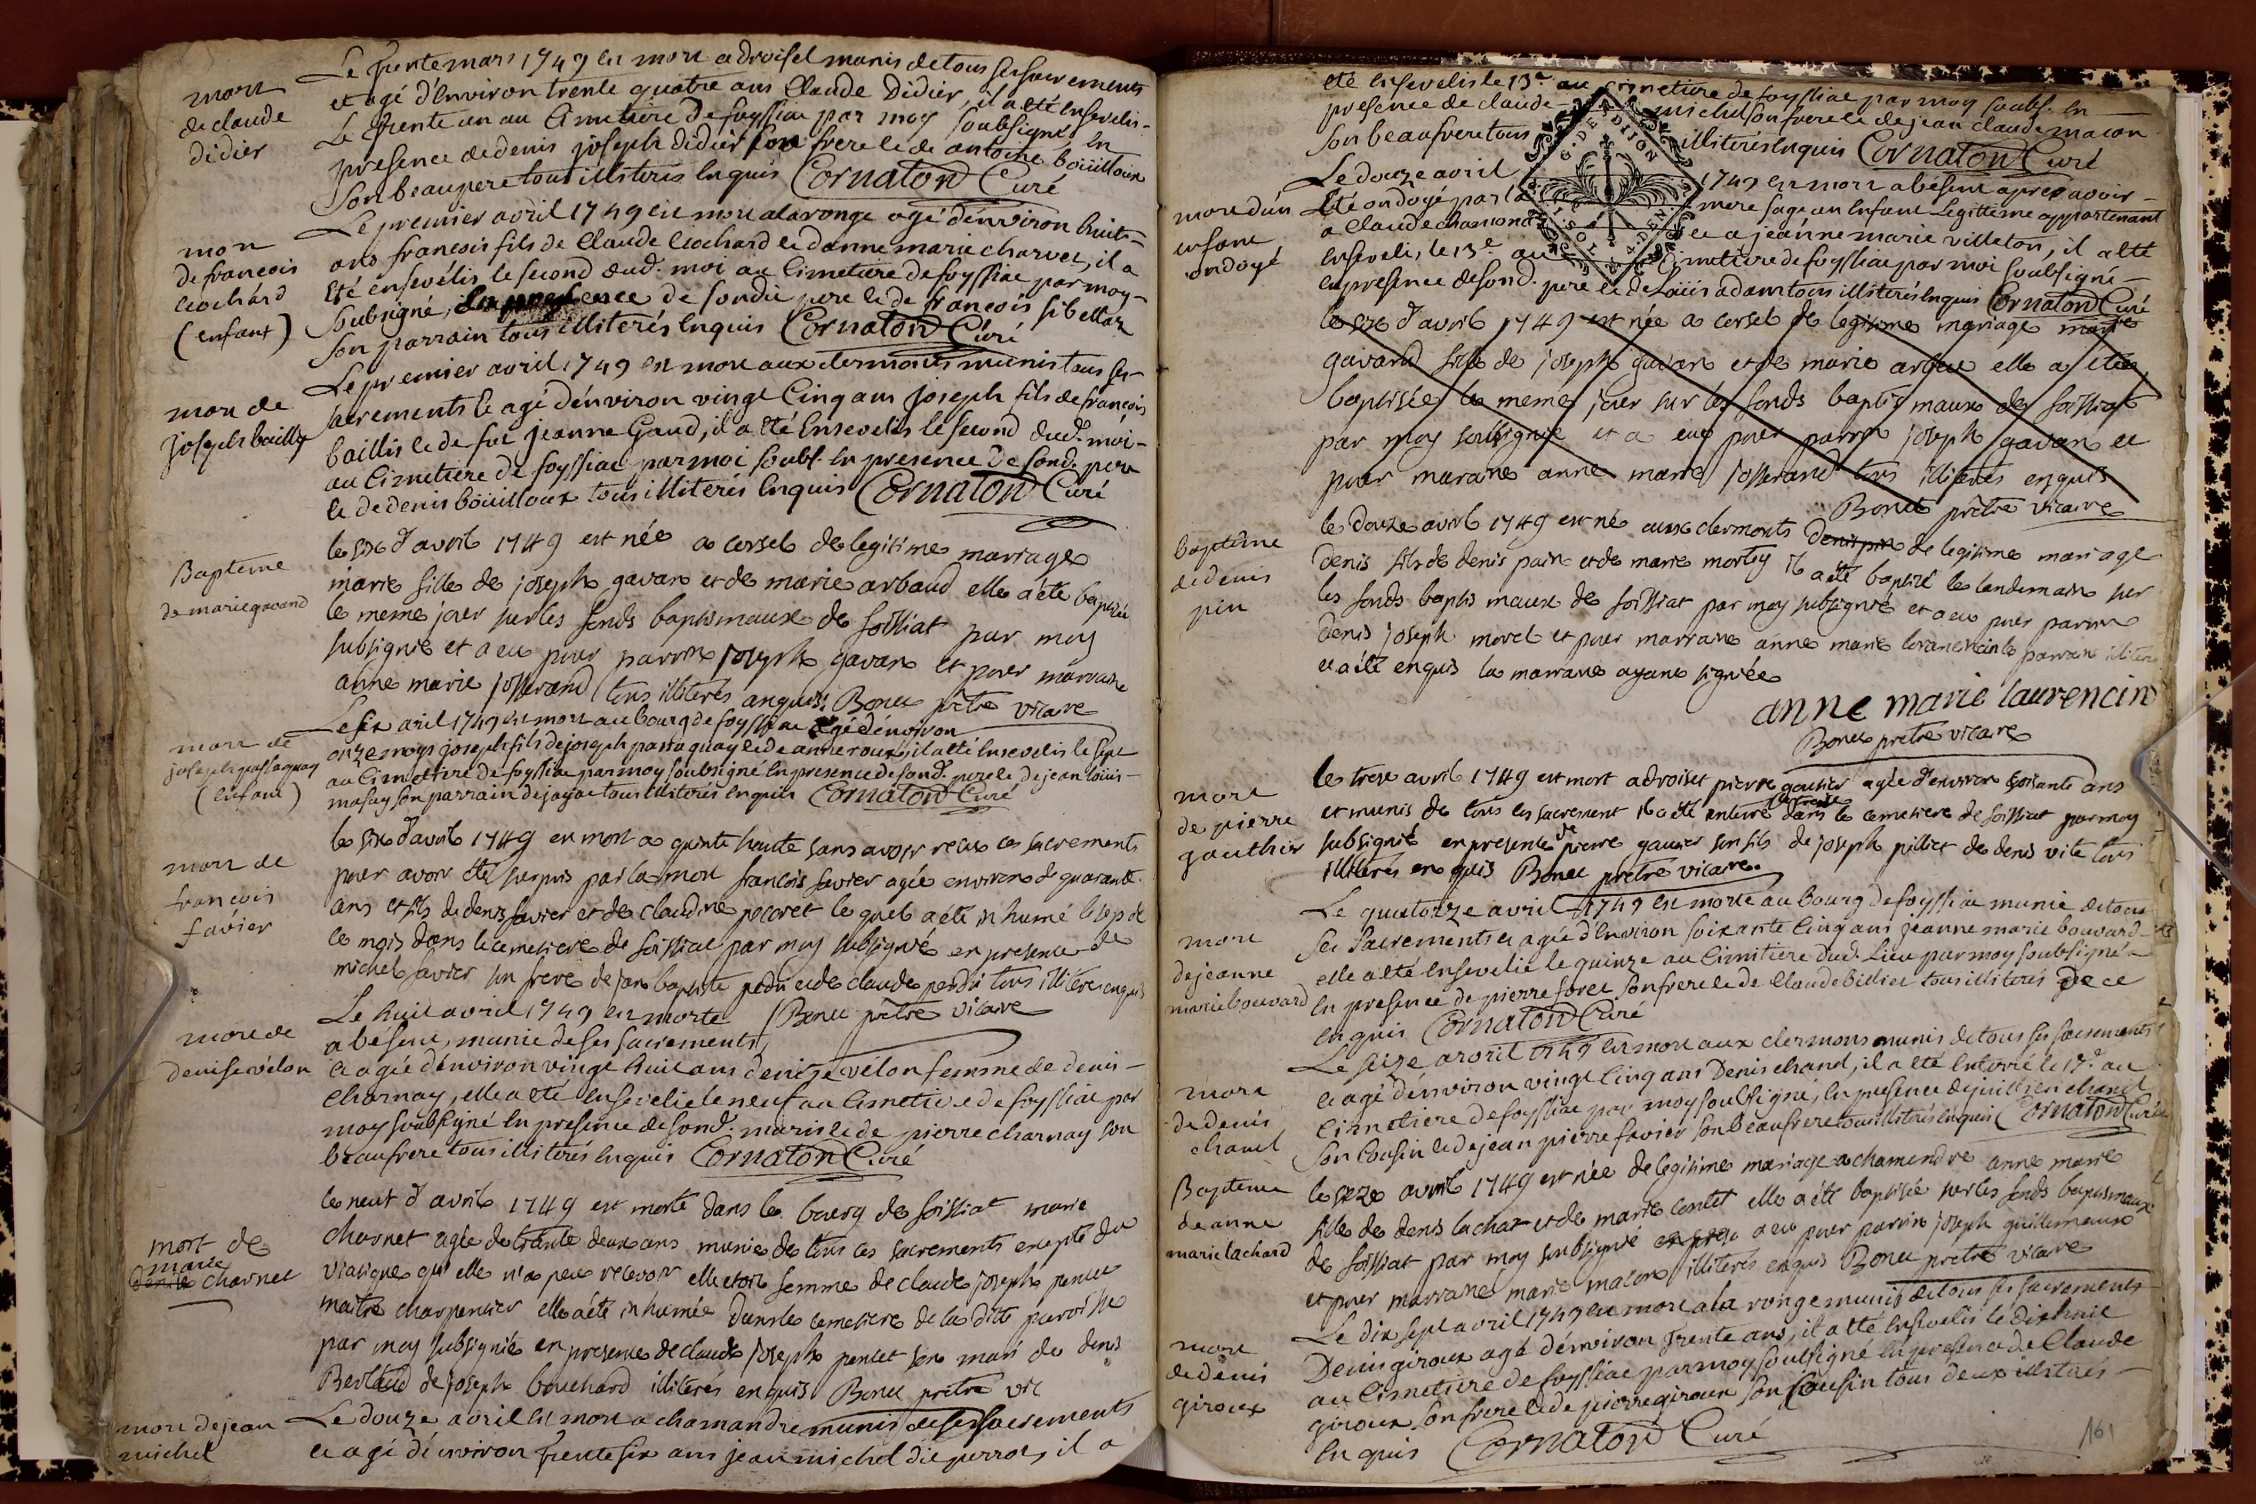 mort
de claude
didier
Le trente mars 1749 est mort a droisel munis de tous ses sacrements
et agé d'environ trente quatre ans Claude Didier, il a eté Ensevelis
Le trente un au Cimetiere de foyssiac par moy soubsigné, En
presence de denis joseph didier son frere et de antoine boüilloux
son beaupere tous illiterés Enquis Cornaton Curé
mort
de francois
cochard
(enfant)
Le premier avril 1749 est mort a la ronge agé d'environ huit
ans francois fils de Claude Cochard et danne marie charvet, il a
Eté ensevelis le second dud. moi au Cimetiere de foyssiac par moy
soubsigné, En presence de sondit pere et de francois sibellas
son parrain tous illiterés Enquis Cornaton Curé
mort de
joseph bailly
Le premier avril 1749 est mort aux clermonts munis tous ses
sacrements et agé d'environ vingt Cinq ans joseph fils de francois
baillis et de fue jeanne Gaud, il a eté Ensevelis le second dud. moi
au Cimetiere de foyssiac par moi soubs. En presence de sond. pere
et de denis boüilloux tous illiterés Enquis Cornaton Curé
Bapteme
de marie gavand
le six d'avril 1749 est née a corsel de legitime marriage
marie fille de joseph gavan et de marie arbaud elle a été baptisée
le meme jour sur les fonds baptismaux de foissiat par moy
subsigné et a eu pour parrin joseph gavan et pour marraine
anne marie josserand tous illiterés enquis Bonet prêtre vicaire
mort de
joseph passaquay
(enfant)
Le six avril 1749 est mort au bourg de foyssiac agé d'environ
onze moys joseph fils de joseph passaquay et de anne roux, il a eté Ensevelis le sept
au Cimetiere de foyssiac par moy soubsigné En presence de sond. pere et de jean loüis
son parrain de jayac tous illiterés Enquis Cornaton Curé
mort de
francois
favier
le six d'avril 1749 est mort a quinte haute sans avoir recu ces sacrements
pour avoir été surpris par la mort francois favier agée environ de quarante
ans et fils de denis favier et de claudine pocoret lequel a été inhumé le sep de
ce mois dans le cemetiere de foissiat par moy subsigné en presence de
michel favier son frere de jan baptiste perdrix et de claude perdri tous illiterés enquis
Bonet prêtre vicaire
mort de
denise vélon
Le huit avril 1749 est morte
a béseni, munie de ses sacrements,
et agée d'environ vingt huit ans denize vélon femme de denis
charnay, elle a eté Ensevelie le neuf au Cimetiere de foyssiac par
moy soubsigné En presence de sond. maris et de pierre charnay son
beaufrere tous illiterés Enquis Cornaton Curé
mort de
marie
charnet
le neuf d'avril 1749 est morte dans le bourg de foissiat marie
charnet agée de trante deux ans munie de tous ces sacrements excepté du
viatique qu'elle n'a peu recevoir elle etoit femme de claude joseph pencet
maitre charpentier elle a été inhumée dans le cemetiere de la dite paroisse
par moy subsigné en presence de claude joseph pencet son mari de denis
Berlaud de joseph bouchard illiterés enquis Bonet prêtre vic
mort de jean
michel
Le douze avril est mort a chamandre munis de ses sacrements
et agé d'environ trente six ans jean michel dit perrot, il a
eté Ensevelis le 13e au Cimetiere de foyssiac par moy soubs. En
presence de claude michel son frere et de jean claude macon
son beaufrere tous illiterés Enquis Cornaton Curé
G. DE DIJON
4. DEN.
mort d'un
enfant
ondoyé
Le douze avril 1749 est mort a béseni apres avoir
Eté ondoyé par la mere sage un Enfant Legitteme appartenant
a Claude chamonas et a jeanne marie villeton, il a eté
Enseveli, le 13e au Cimetiere de foyssiac par moi soubsigné
En presence de sond. pere et de Loüis adam tous illiterés Enquis Cornaton Curé
le six d'avril 1749 est née a corsel de legitime mariage marie
gavand fille de joseph gavan et de marie arbau elle a été
baptisée le meme jour sur les fonds baptismaux de foissiat
par moy subsigné et a eue pour parrin joseph gavan et
pour maraine anne marie josserand tous illiterés enquis
Bonet prêtre vicaire
bapteme
de denis
pin
le douze avril 1749 est né aux clermonts de legitime mariage
denis fils de denis pain et de marie morley il a été baptisé le lendemain sur
les fonds baptismaux de foissiat par moy subsigné et a eu pour parrin
denis joseph morel et pour marraine anne marie lorancin le parrain illiteré
et a été enquis la marraine ayant signée
anne marie laurencin
Bonet prêtre vicaire
mort
de pierre
gauthier
le treze avril 1749 est mort a droiset pierre gautier agée d'environ soisante ans
et munis de tous ces sacrement il a été enterré dans le cemetiere de foissiat par moy
subsigné en presence de pierre gautier son fils de joseph pilliet de denis vite tous
illiterés enquis Bonet prêtre vicaire
mort
de jeanne
marie bouvard
Le quatorze avril 1749 est morte au bourg de foyssiac munie de tous
ses Sacrements et agée d'environ soixante Cinq ans jeanne marie bouvard
elle a eté Ensevelie le quinze au Cimitiere dud. Lieu par moy soubsigné
En presence de pierre foret son frere et de Claude bidiet tous illiterés de ce
Enquis Cornaton Curé
mort
de denis
chanel
Le seize avril 1749 est mort aux clermons munis de tous ses sacrements
et agé d'environ vingt Cinq ans Denis chanel, il a eté Enterré le 17e au
Cimetiere de foyssiac par moy soubsigné, En presence de juillien chanel
son Cousin et de jean pierre favier son beaufrere tous illiterés Enquis Cornaton Curé
Bapteme
de anne
marie lachard
le seze avril 1749 est née de legitime mariage a chamendre anne marie
fille de denis lachar et de marie contet elle a été baptisée sur les fonds baptismaux
de foissiat par moy subsigné a eu pour parrin joseph guillemaux
et pour marraine marie macon illiterés enquis Bonet prêtre vicaire
mort
de denis
giroux
Le dix sept avril 1749 est mort a la ronge munis de tous ses sacrements
Denis giroux agé d'environ trente ans, il a eté Ensevelis le dix huit
au Cimetiere de foyssiac par moy soubsigné En presence de Claude
giroux son frere et de pierre giroux son Cousin tous deux illiterés
Enquis Cornaton Curé
161